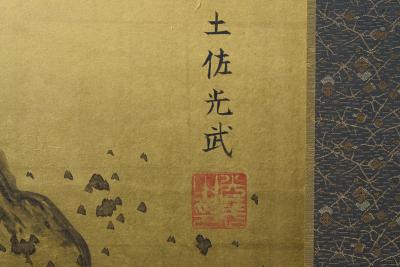 土佐光武